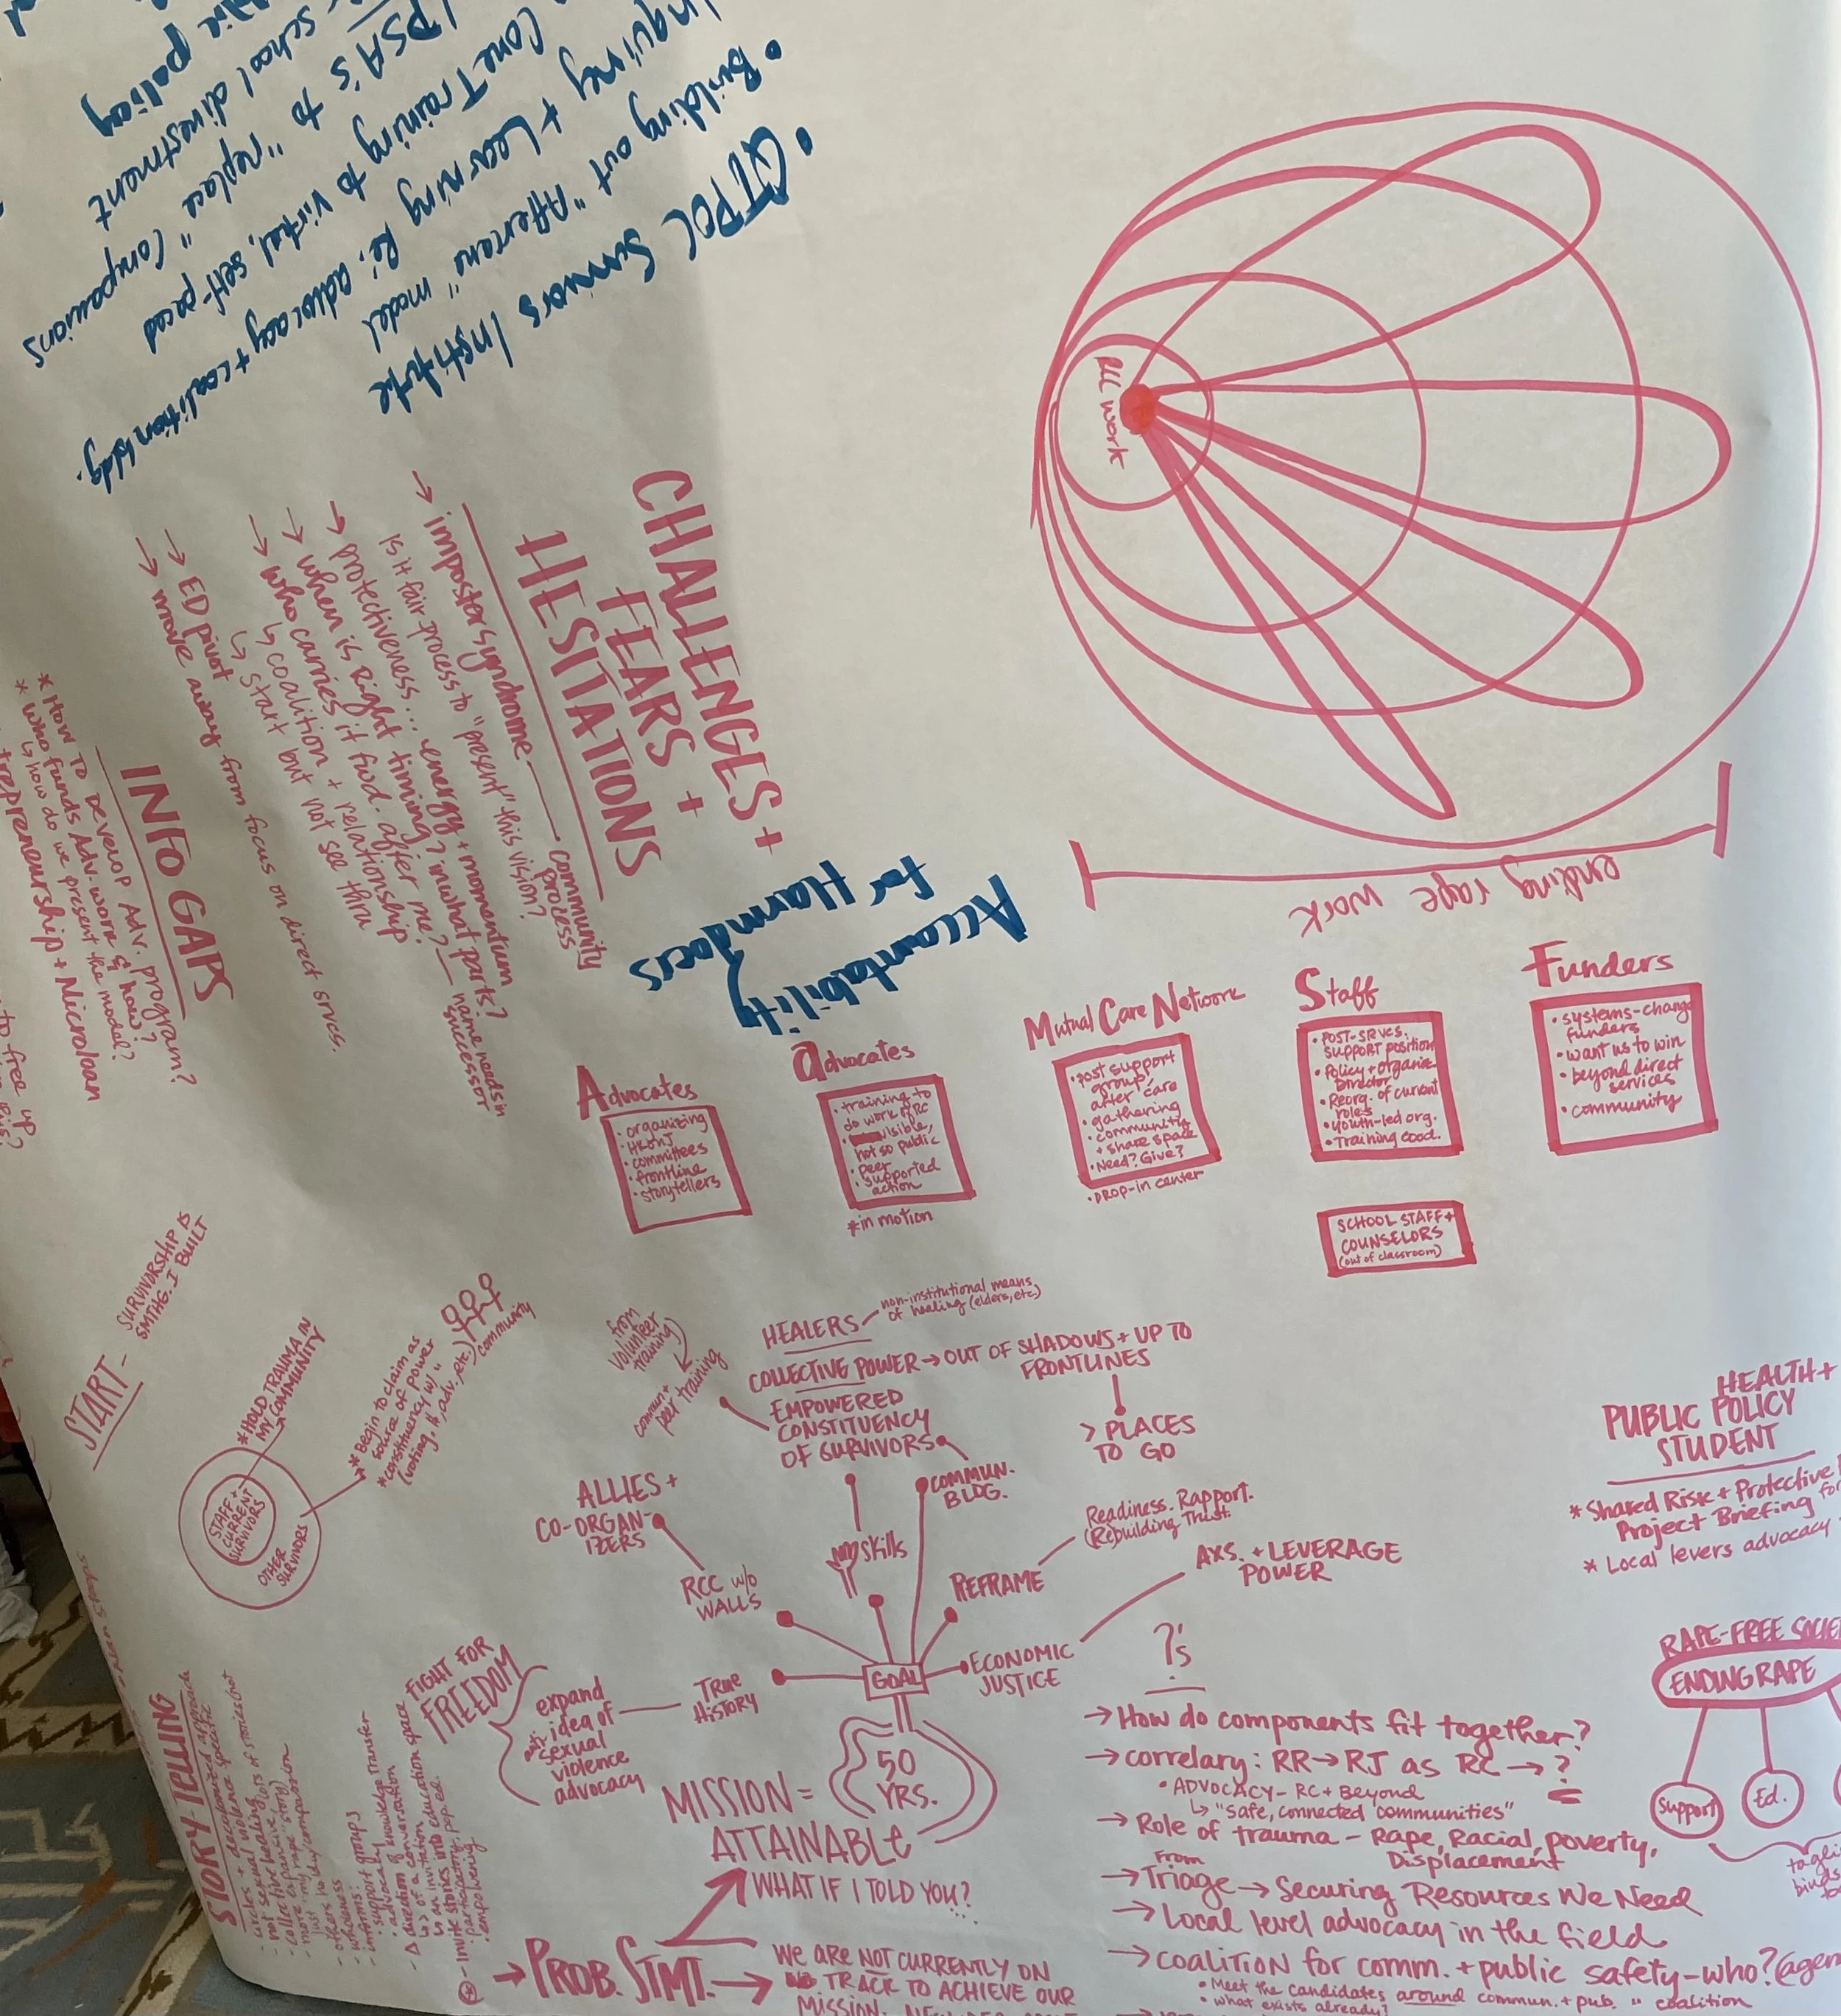 • QTPOC Survivors Institute
• Building out "Aftercare" model
+ Learning Re: advocacy + coalition bldg.
Core Training to virtual, self-paced
PSA's to "replace" companions
school divestment
policy
RCC work
ending rape work
CHALLENGES +
FEARS +
HESITATIONS
→ imposter syndrome — community
process
is it fair process to "present" this vision?
→ protectiveness... energy + momentum
→ when is Right timing? in what parts?
→ who carries it fwd. after me? — name needs in
successor
↳ coalition + relationship
↳ start but not see thru
→ ED pivot
→ move away from focus on direct srvcs.
INFO GAPS
* HOW TO DEVELOP Adv. program?
* who funds Adv. work & how?
↳ how do we present the model?
+ Microloan
to free up
Accountability
for Harmdoers
Advocates
• organizing
• committees
• frontline
• storytellers
advocates
• training to
do work of RC
visible,
not so public
• peer
supported
action
*in motion
Mutual Care Network
• post support
group,
after care
• gathering
• community
+ share space
• Need? Give?
• DROP-in center
Staff
• POST-SRVCS.
SUPPORT position
• Policy + organize
Director
• Reorg. of current
roles
• youth-led org.
• Training coord.
SCHOOL STAFF +
COUNSELORS
(out of classroom)
Funders
• systems-change
funders
• want us to win
• beyond direct
services
• community
START - SURVIVORSHIP IS
SMTHG. I BUILT
*HOLD TRAUMA IN
MY COMMUNITY
* Begin to claim as
source of power
* constituency w/
(voting, #, adv., etc.) / community
STAFF +
CURRENT
SURVIVORS
OTHER
SURVIVORS
from
volunteer
training)
commun +
peer training
HEALERS — non-institutional means
of healing (elders, etc.)
COLLECTIVE POWER → OUT OF SHADOWS + UP TO
FRONTLINES
> PLACES
TO GO
EMPOWERED
CONSTITUENCY
OF SURVIVORS
COMMUN.
BLDG.
ALLIES +
CO-ORGAN-
IZERS
RCC w/o
WALLS
skills
REFRAME
Readiness. Rapport.
(Re)building Trust.
AXS. + LEVERAGE
POWER
ECONOMIC
JUSTICE
GOAL
TRUE
HISTORY
FIGHT FOR
FREEDOM
expand
idea of
sexual
violence
advocacy
50
YRS.
MISSION =
ATTAINABLE
WHAT IF I TOLD YOU?...
→ PROB. STMT. → WE ARE NOT CURRENTLY ON
TRACK TO ACHIEVE OUR
MISSION.
STORY-TELLING
• circles + decolonized approach
• not sexual violence specific
• collective healing
more expansive
• offers
• wholeness
• informs:
• support groups
• advocacy
• direction of knowledge transfer
↳ of a conversation
↳ an invitation
• invite stories into education space
• participatory, pop. ed.
• empowering
?'s
→ How do components fit together?
→ correlary: RR → RJ as RC → ?
• ADVOCACY - RC + Beyond
↳ "safe, connected communities"
→ Role of trauma - Rape, Racial, poverty,
Displacement
→ From Triage → Securing Resources We Need
→ Local level advocacy in the field
→ COALITION for comm. + public safety - who?
• Meet the candidates around commun. + pub. " coalition
• what exists already?
HEALTH +
PUBLIC POLICY
STUDENT
* Shared Risk + Protective
Project Briefing for
* Local levers advocacy
RAPE-FREE SOCIE
ENDING RAPE
Support
Ed.